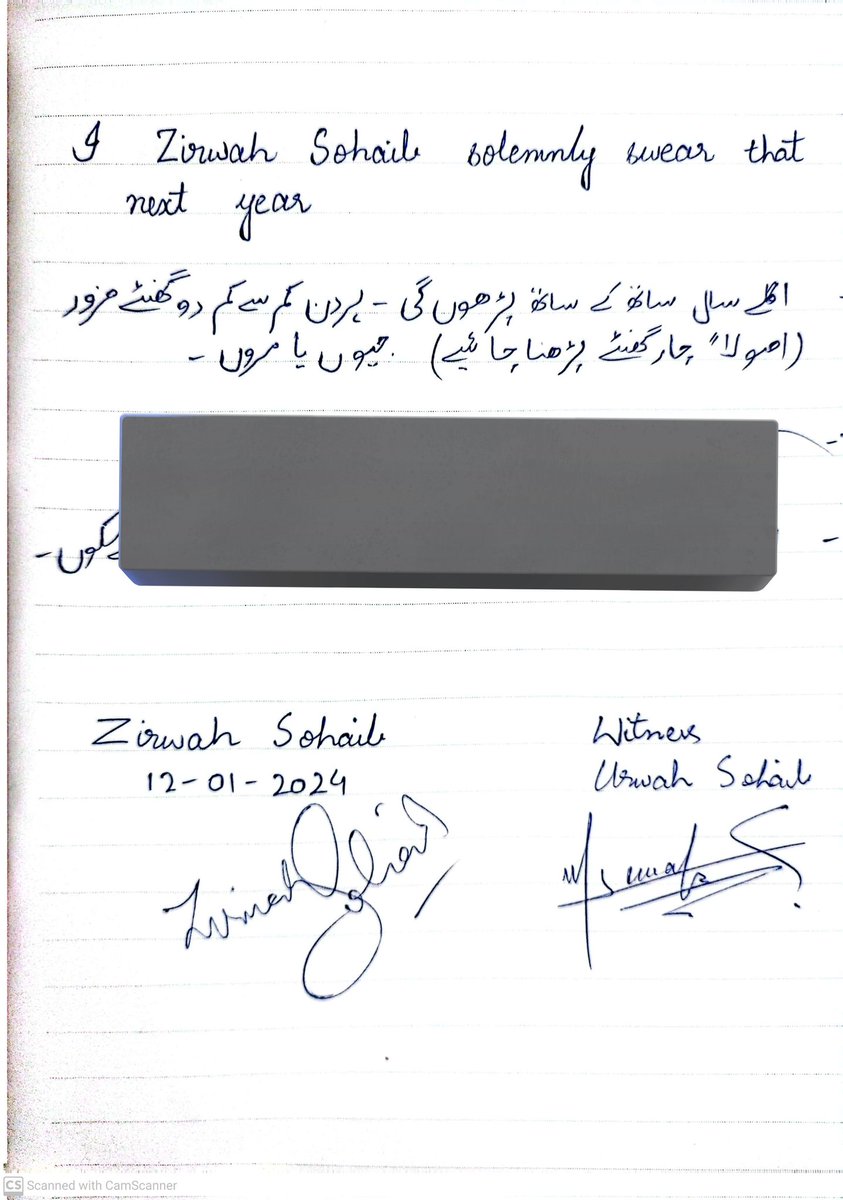 I Zirwah Sohail solemnly swear that
next year
اگلے سال ساتھ کے ساتھ پڑھوں گی - ہر دن کم سے کم دو گھنٹے ضرور
(اصولاً چار گھنٹے پڑھنا چائیے) جیوں یا مروں -
Zirwah Sohail
12-01-2024
Witness
Urwah Sohail
CS Scanned with CamScanner